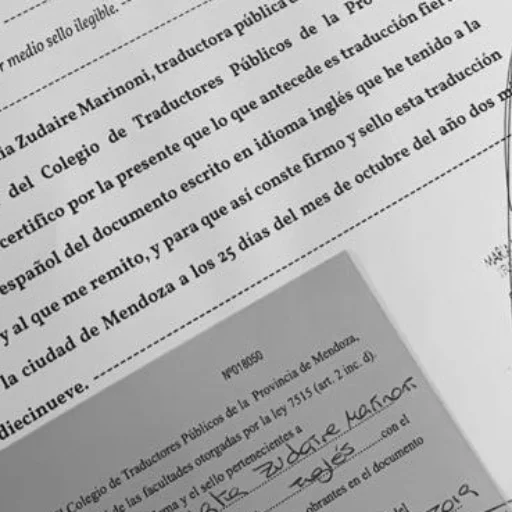 medio sello ilegible.
Zudaire Marinoni, traductora pública
del Colegio de Traductores Públicos de la
certifico por la presente que lo que antecede es traducción
español del documento escrito en idioma inglés que he tenido a la
y al que me remito, y para que así conste firmo y sello esta traducción
la ciudad de Mendoza a los 25 días del mes de octubre del año dos
diecinueve.
Nº018050
Colegio de Traductores Públicos de la Provincia de Mendoza,
de las facultades otorgadas por la ley 7515 (art. 2 inc. d).
y el sello pertenecientes a
Zudaire Marinoni
Inglés con el
obrantes en el documento
del 2019